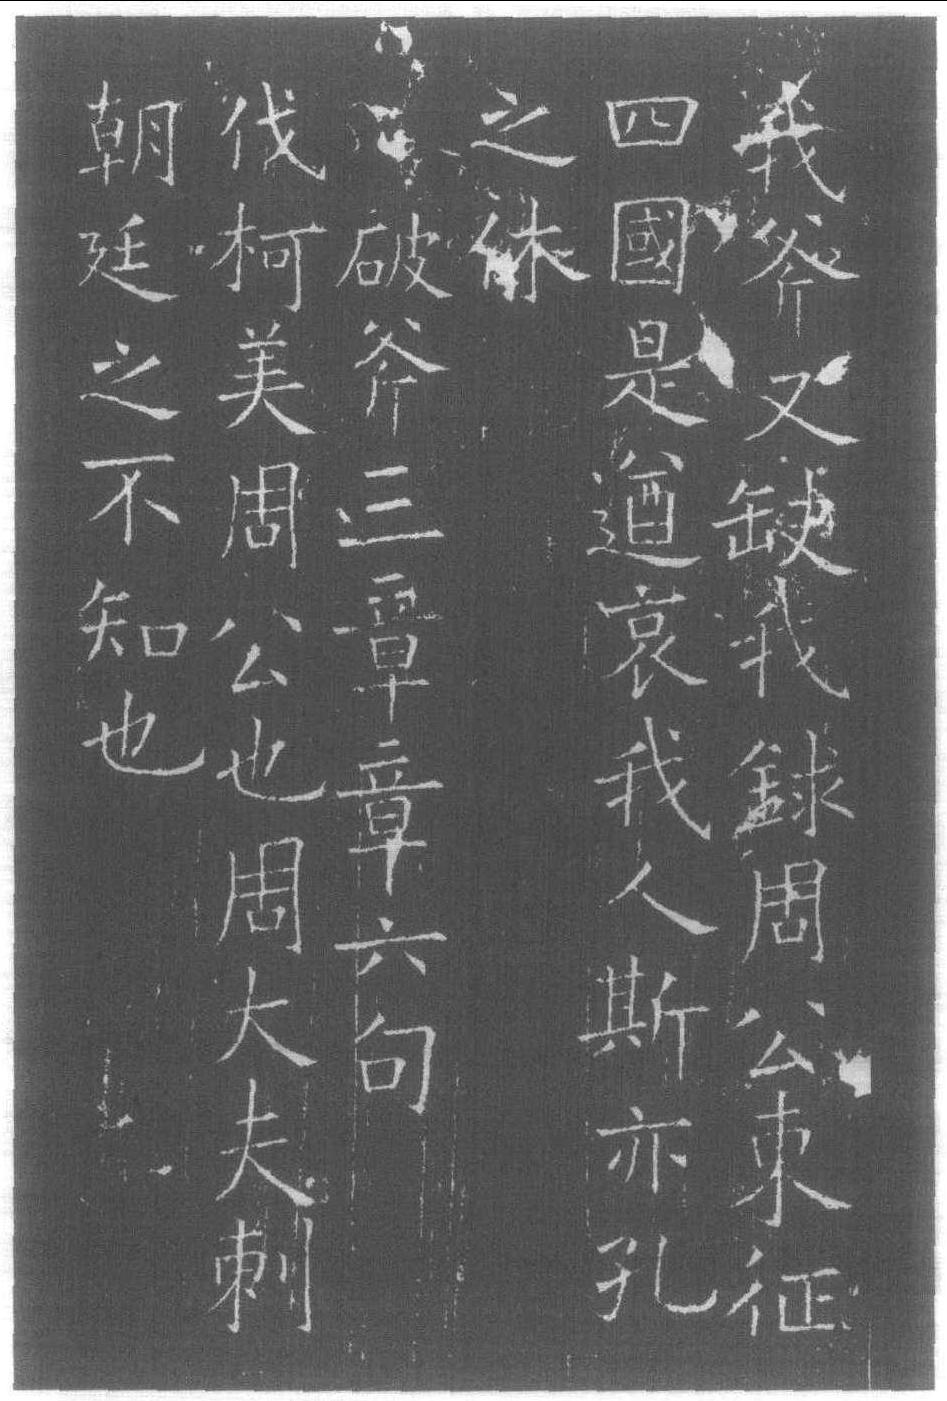 我斧又缺我銶周公東征
四國是遒哀我人斯亦孔
之休
破斧三章章六句
伐柯美周公也周大夫刺
朝廷之不知也